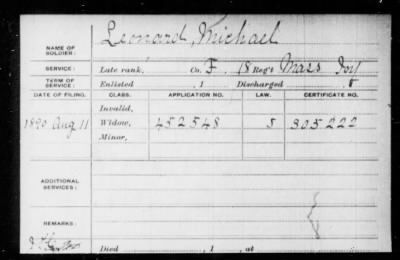 NAME OF SOLDIER: Leonard, Michael
SERVICE: Late rank, Co. F, 18 Reg't Mass Inf
TERM OF SERVICE: Enlisted , 1 Discharged , 1
DATE OF FILING. CLASS. APPLICATION NO. LAW. CERTIFICATE NO.
Invalid,
1890 Aug 11 Widow, 452548 J 305222
Minor,
ADDITIONAL SERVICES:
REMARKS:
Died , 1 , at